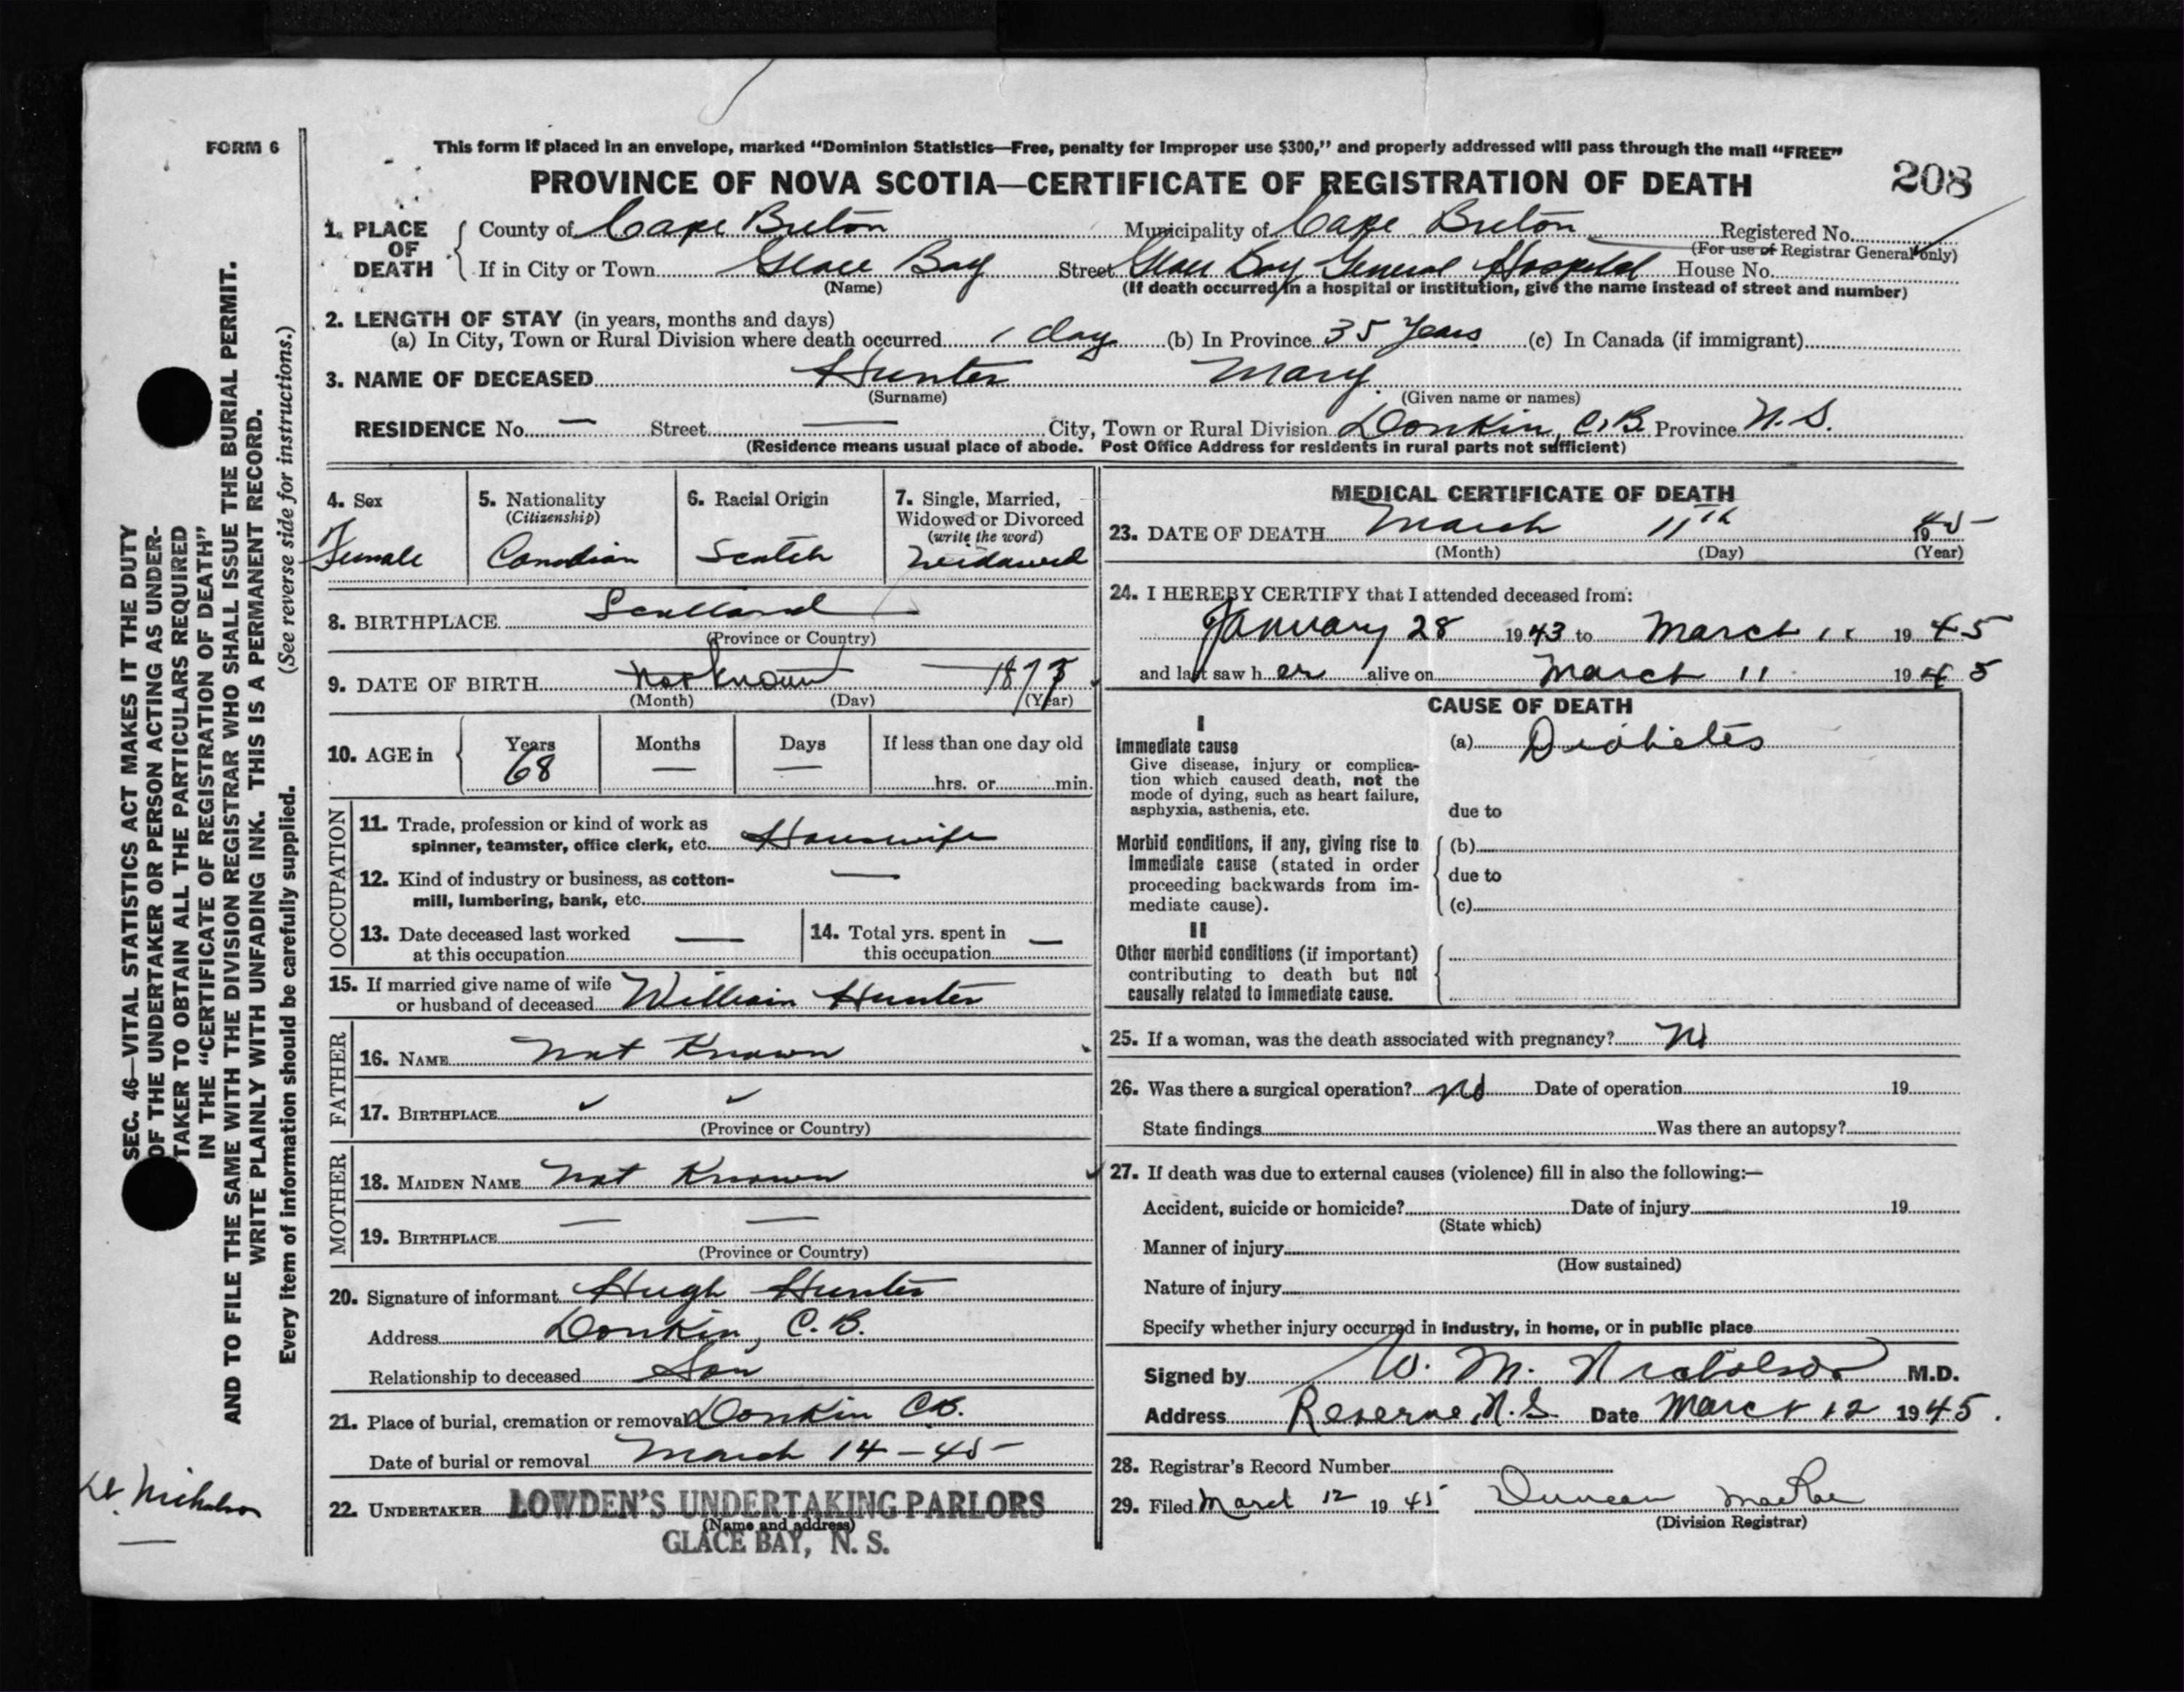 FORM 6
This form if placed in an envelope, marked “Dominion Statistics—Free, penalty for improper use $300,” and properly addressed will pass through the mail “FREE”
PROVINCE OF NOVA SCOTIA—CERTIFICATE OF REGISTRATION OF DEATH
208
1. PLACE OF DEATH
County of Cape Breton Municipality of Cape Breton Registered No.
(For use of Registrar General only)
If in City or Town Glace Bay Street Glace Bay General Hospital House No.
(Name) (If death occurred in a hospital or institution, give the name instead of street and number)
2. LENGTH OF STAY (in years, months and days)
(a) In City, Town or Rural Division where death occurred 1 day (b) In Province 35 Years (c) In Canada (if immigrant)
3. NAME OF DECEASED Hunter Mary
(Surname) (Given name or names)
RESIDENCE No. — Street — City, Town or Rural Division Donkin, C.B. Province N.S.
(Residence means usual place of abode. Post Office Address for residents in rural parts not sufficient)
4. Sex
Female
5. Nationality
(Citizenship)
Canadian
6. Racial Origin
Scotch
7. Single, Married,
Widowed or Divorced
(write the word)
Widowed
8. BIRTHPLACE Scotland
(Province or Country)
9. DATE OF BIRTH Not known —
(Month) (Day) (Year)
10. AGE in
Years Months Days If less than one day old
68 — — hrs. or min.
OCCUPATION
11. Trade, profession or kind of work as
spinner, teamster, office clerk, etc. Housewife
12. Kind of industry or business, as cotton-
mill, lumbering, bank, etc. —
13. Date deceased last worked
at this occupation —
14. Total yrs. spent in
this occupation —
15. If married give name of wife
or husband of deceased William Hunter
FATHER
16. NAME Not Known
17. BIRTHPLACE ✓ ✓
(Province or Country)
MOTHER
18. MAIDEN NAME Not Known
19. BIRTHPLACE — —
(Province or Country)
20. Signature of informant Hugh Hunter
Address Donkin, C.B.
Relationship to deceased Son
21. Place of burial, cremation or removal Donkin C.B.
Date of burial or removal March 14 - 45
22. UNDERTAKER LOWDEN'S UNDERTAKING PARLORS
(Name and address)
GLACE BAY, N. S.
MEDICAL CERTIFICATE OF DEATH
23. DATE OF DEATH March 11th 1945
(Month) (Day) (Year)
24. I HEREBY CERTIFY that I attended deceased from:
January 28 1943 to March 11 1945
and last saw her alive on March 11 1945
CAUSE OF DEATH
I
Immediate cause
Give disease, injury or complica-
tion which caused death, not the
mode of dying, such as heart failure,
asphyxia, asthenia, etc.
(a) Diabetes
due to
Morbid conditions, if any, giving rise to
immediate cause (stated in order
proceeding backwards from im-
mediate cause).
(b)
due to
(c)
II
Other morbid conditions (if important)
contributing to death but not
causally related to immediate cause.
25. If a woman, was the death associated with pregnancy? No
26. Was there a surgical operation? No Date of operation 19
State findings Was there an autopsy?
27. If death was due to external causes (violence) fill in also the following:—
Accident, suicide or homicide? Date of injury 19
(State which)
Manner of injury
(How sustained)
Nature of injury
Specify whether injury occurred in industry, in home, or in public place
Signed by W. M. Nicholson M.D.
Address Reserve, N.S. Date March 12 1945.
28. Registrar's Record Number
29. Filed March 12 1945 Duncan MacRae
(Division Registrar)
SEC. 46—VITAL STATISTICS ACT MAKES IT THE DUTY
OF THE UNDERTAKER OR PERSON ACTING AS UNDER-
TAKER TO OBTAIN ALL THE PARTICULARS REQUIRED
IN THE “CERTIFICATE OF REGISTRATION OF DEATH”
AND TO FILE THE SAME WITH THE DIVISION REGISTRAR WHO SHALL ISSUE THE BURIAL PERMIT.
WRITE PLAINLY WITH UNFADING INK. THIS IS A PERMANENT RECORD.
Every item of information should be carefully supplied. (See reverse side for instructions.)
Dr. Nicholson